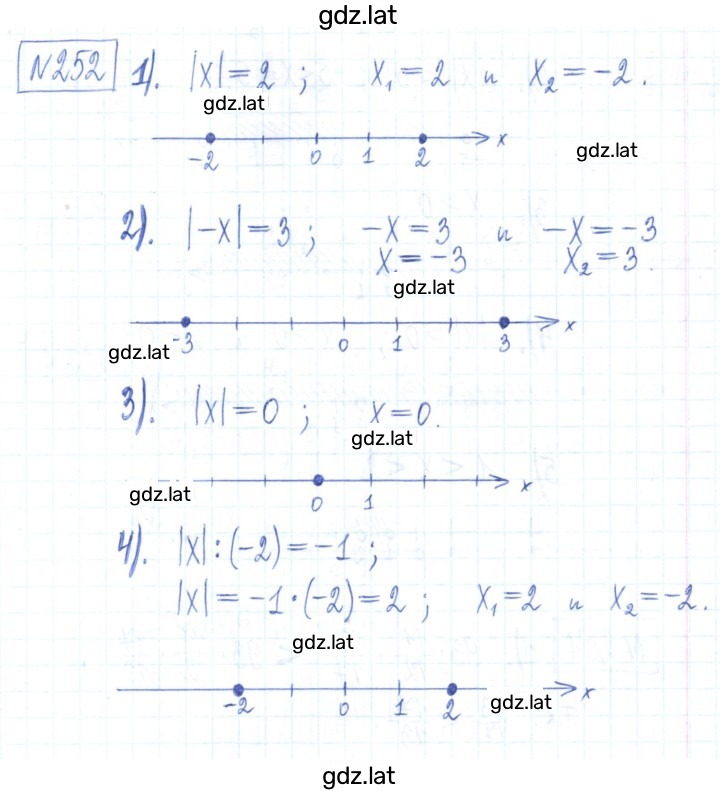 gdz.lat
№252 1). |x|=2 ; x₁=2 и x₂=-2.
gdz.lat
-2 0 1 2 x
gdz.lat
2). |-x|=3 ; -x=3 и -x=-3
x.=-3 x₂=3.
gdz.lat
-3 0 1 3 x
gdz.lat
3). |x|=0 ; x=0.
gdz.lat
0 1 x
gdz.lat
4). |x|:(-2)=-1 ;
|x|=-1·(-2)=2 ; x₁=2 и x₂=-2.
gdz.lat
-2 0 1 2 x
gdz.lat
gdz.lat